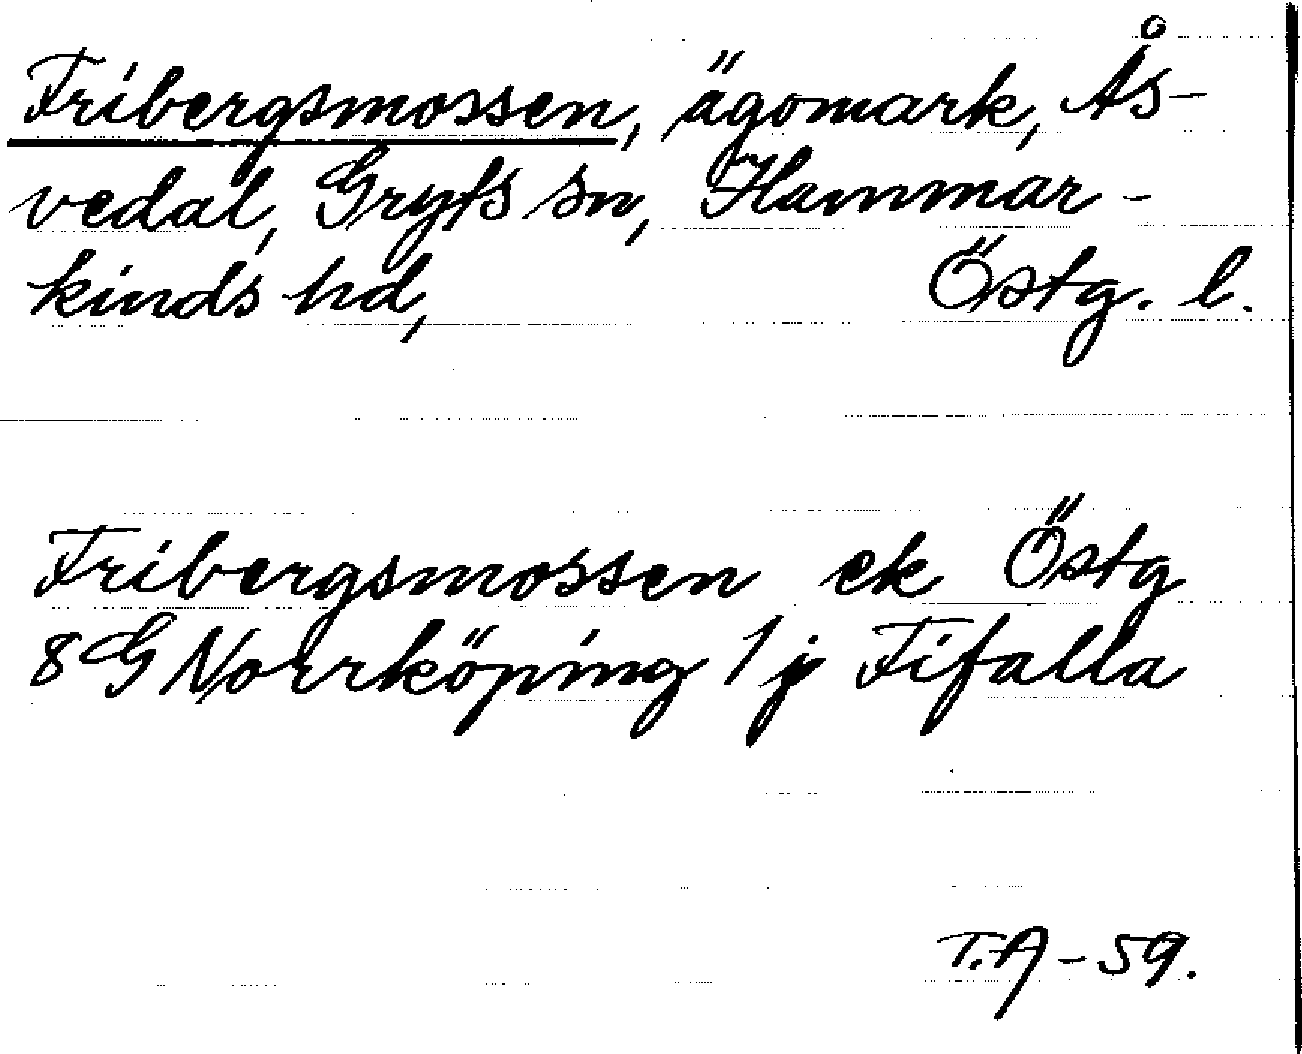 Fribergsmossen, ägomark, Ås-
vedal, Gryts sn, Hammar-
kinds hd, Östg. l.
Fribergsmossen ek Östg
8 G Norrköping 1 j Fifalla
T.A-59.